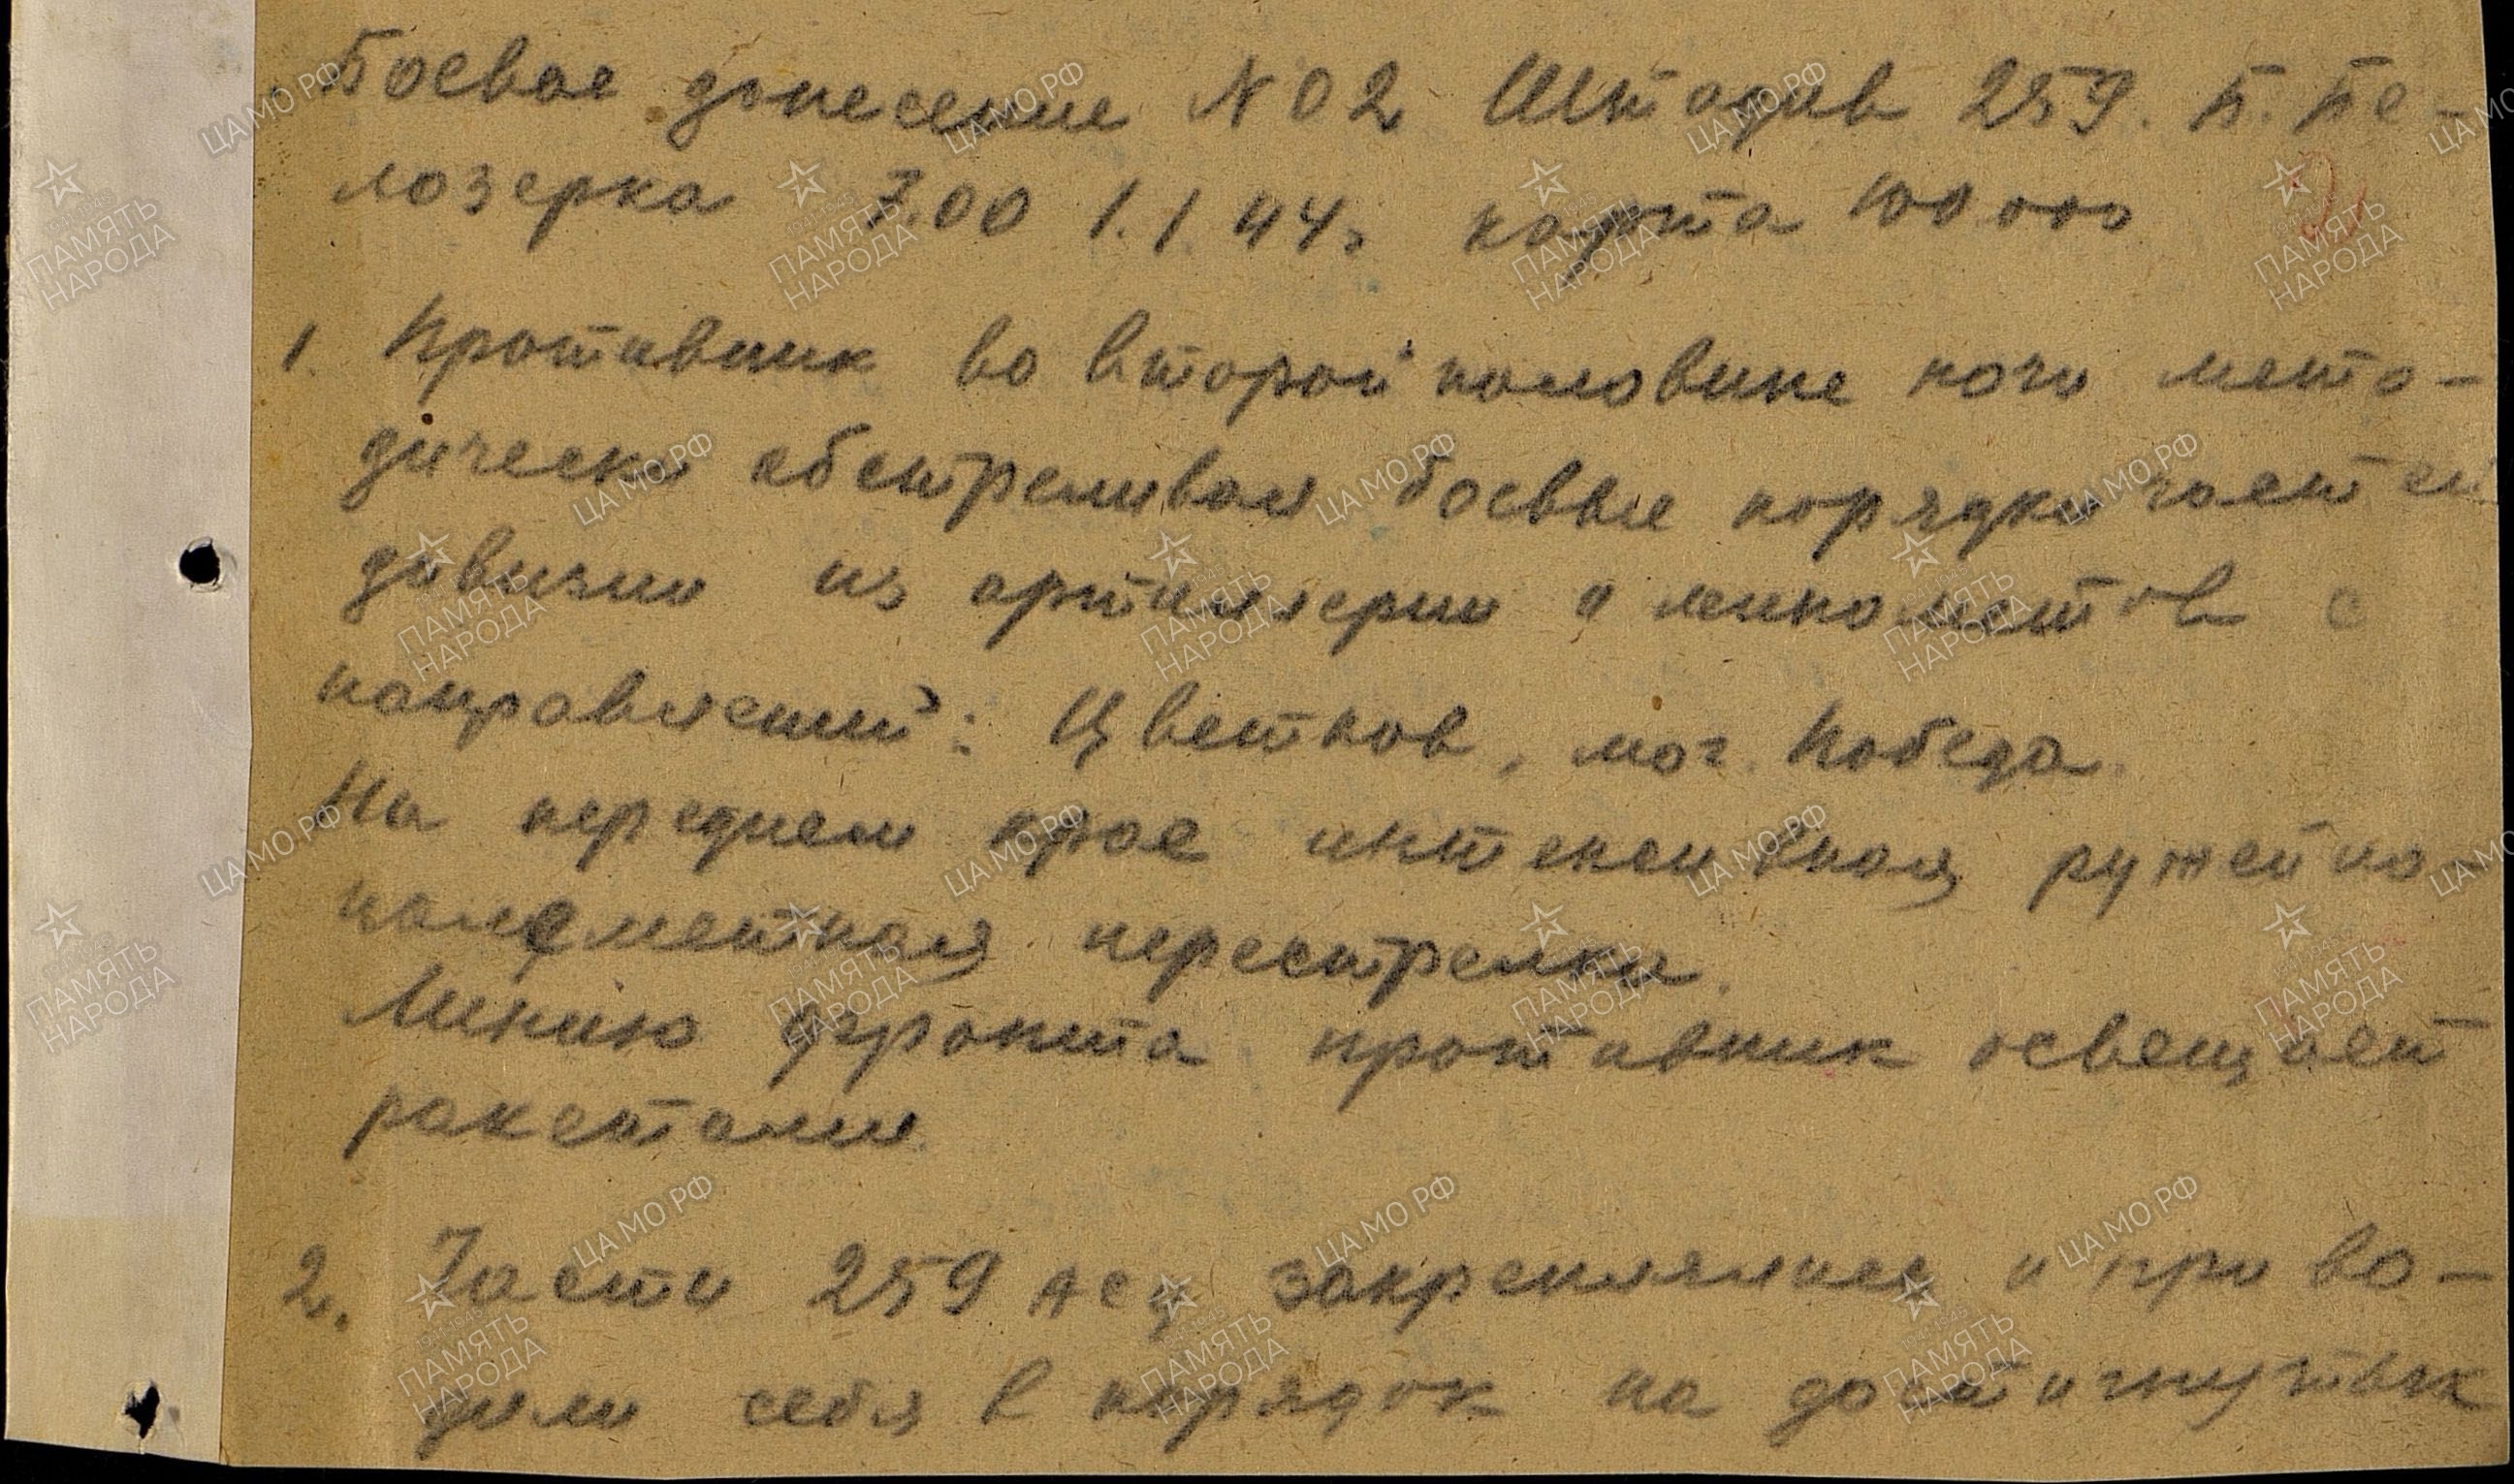 Боевое донесение N 02 Штадив 259. Б. Бе-
лозерка 7.00 1.1.44г. карта 100 000
1. Противник во второй половине ночи мето-
дически обстреливал боевые порядки частей
дивизии из артиллерии и минометов с
направлений: Цветков, мог. Победа.
На переднем крае интенсивная ружейно-
пулеметная перестрелка.
Линию фронта противник освещает
ракетами.
2. Части 259 исд закреплялись и приво-
дили себя в порядок на достигнутых
ЦА МО РФ
1941-1945
ПАМЯТЬ
НАРОДА